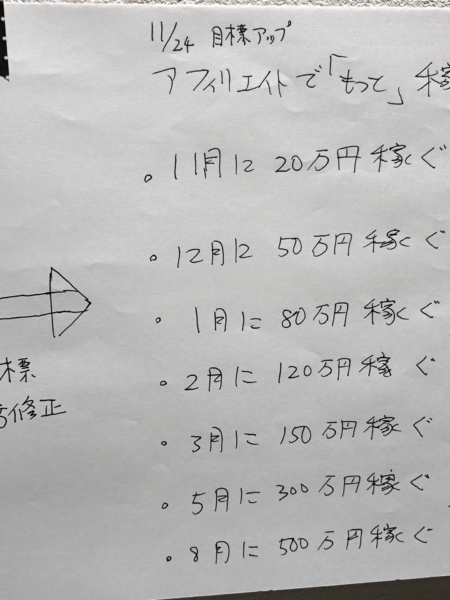 11/24 目標アップ
アフィリエイトで「もっと」稼
・11月に 20万円稼ぐ
・12月に 50万円稼ぐ
・1月に 80万円稼ぐ
・2月に 120万円稼ぐ
・3月に 150万円稼ぐ
・5月に 300万円稼ぐ
・8月に 500万円稼ぐ
標
修正